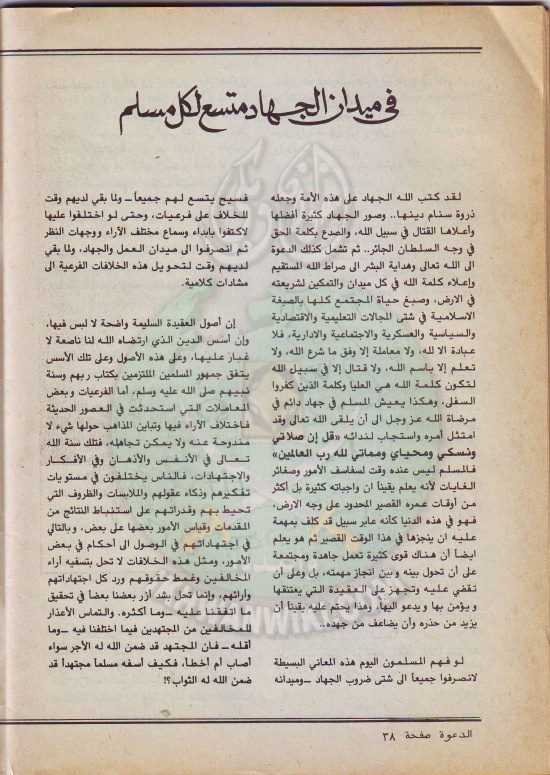 في ميدان الجهاد متسع لكل مسلم
لقد كتب الله الجهاد على هذه الأمة وجعله
ذروة سنام دينها.. وصور الجهاد كثيرة أفضلها
وأعلاها القتال في سبيل الله، والصدع بكلمة الحق
في وجه السلطان الجائر.. ثم تشمل كذلك الدعوة
الى الله تعالى وهداية البشر الى صراط الله المستقيم
وإعلاء كلمة الله في كل ميدان والتمكين لشريعته
في الارض، وصبغ حياة المجتمع كلها بالصبغة
الاسلامية في شتى المجالات التعليمية والاقتصادية
والسياسية والعسكرية والاجتماعية والادارية، فلا
عبادة الا لله، ولا معاملة إلا وفق ما شرع الله، ولا
تعلم إلا باسم الله، ولا قتال إلا في سبيل الله
لتكون كلمة الله هي العليا وكلمة الذين كفروا
السفلى، وهكذا يعيش المسلم في جهاد دائم في
مرضاة الله عز وجل الى أن يلقى الله تعالى وقد
امتثل أمره واستجاب لندائه «قل إن صلاتي
ونسكي ومحياي ومماتي لله رب العالمين»
فالمسلم ليس عنده وقت لسفاسف الأمور وصغائر
الغايات لأنه يعلم يقيناً أن واجباته كثيرة بل أكثر
من أوقات عمره القصير المحدود على وجه الارض،
فهو في هذه الدنيا كأنه عابر سبيل قد كلف بمهمة
عليه ان ينجزها في هذا الوقت القصير ثم هو يعلم
ايضاً أن هناك قوى كثيرة تعمل جاهدة ومجتمعة
على أن تحول بينه وبين انجاز مهمته، بل وعلى أن
تقضي عليه وتجهز على العقيدة التي يعتنقها
ويؤمن بها ويدعو اليها، وهذا يحتم عليه يقيناً أن
يزيد من حذره وأن يضاعف من جهده..
لو فهم المسلمون اليوم هذه المعاني البسيطة
لانصرفوا جميعاً الى شتى ضروب الجهاد ـ وميدانه
فسيح يتسع لهم جميعاً ـ ولما بقي لديهم وقت
للخلاف على فرعيات، وحتى لو اختلفوا عليها
لاكتفوا بابداء وسماع مختلف الآراء ووجهات النظر
ثم انصرفوا الى ميدان العمل والجهاد، ولما بقي
لديهم وقت لتحويل هذه الخلافات الفرعية الى
مشادات كلامية.
إن أصول العقيدة السليمة واضحة لا لبس فيها،
وإن أسس الدين الذي ارتضاه الله لنا ناصعة لا
غبار عليها، وعلى هذه الأصول وعلى تلك الأسس
يتفق جمهور المسلمين الملتزمين بكتاب ربهم وسنة
نبيهم صلى الله عليه وسلم، أما الفرعيات وبعض
المعاملات التي استحدثت في العصور الحديثة
فاختلاف الآراء فيها وتباين المذاهب حولها شيء لا
مندوحة عنه ولا يمكن تجاهله، فتلك سنة الله
تعالى في الأنفس والأذهان وفي الأفكار
والاجتهادات، فالناس يختلفون في مستويات
تفكيرهم وذكاء عقولهم والملابسات والظروف التي
تحيط بهم وقدراتهم على استنباط النتائج من
المقدمات وقياس الأمور بعضها على بعض، وبالتالي
في اجتهاداتهم في الوصول الى أحكام في بعض
الأمور، ومثل هذه الخلافات لا تحل بتسفيه أراء
المخالفين وغمط حقوقهم ورد كل اجتهاداتهم
وأرائهم، وإنما تحل بشد أزر بعضنا بعضاً في تحقيق
ما اتفقنا عليه ـ وما أكثره. والتماس الأعذار
للمخالفين من المجتهدين فيما اختلفنا فيه ـ وما
أقله ـ فان المجتهد قد ضمن الله له الأجر سواء
أصاب أم أخطأ، فكيف أسفه مسلماً مجتهداً قد
ضمن الله له الثواب؟!
الدعوة صفحة ٣٨